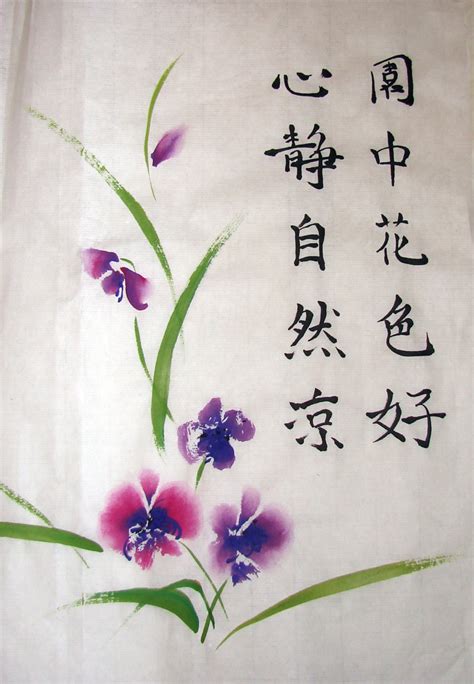 園中花色好
心靜自然凉